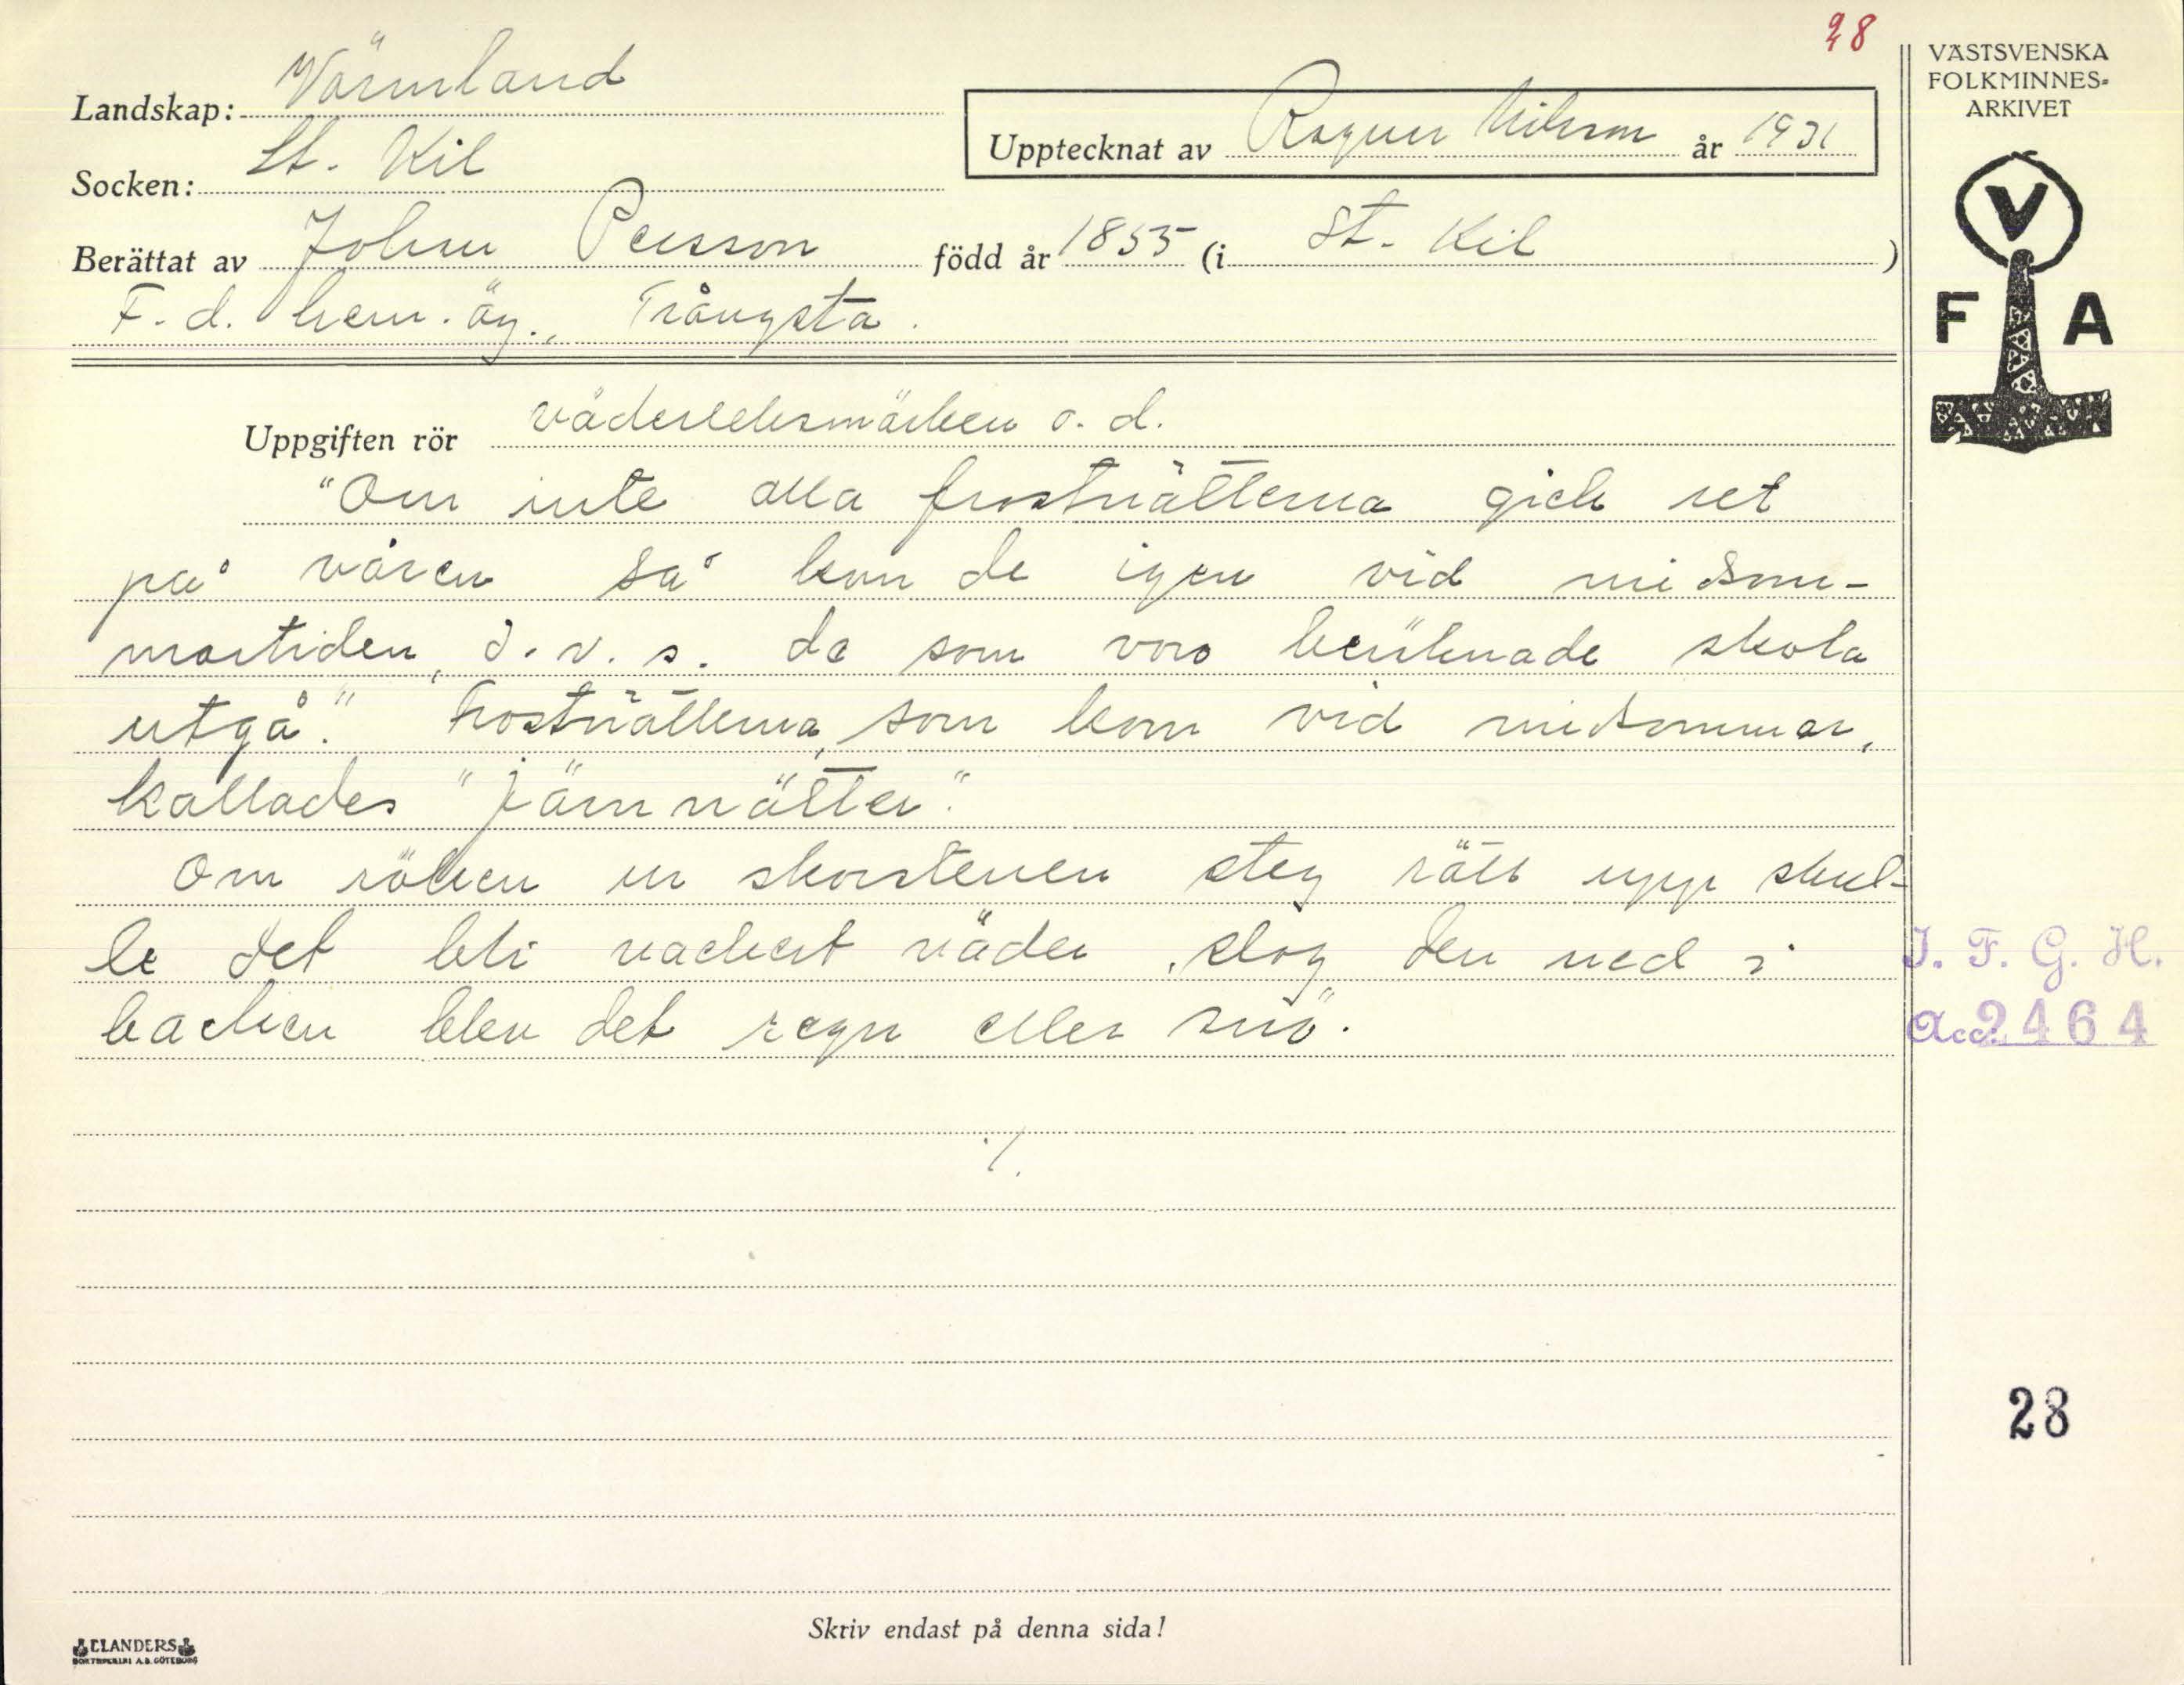 28
VÄSTSVENSKA
FOLKMINNES-
ARKIVET
Landskap: Värmland
Upptecknat av Ragnar Nilsson år 1931
Socken: St. Kil
Berättat av Johan Persson född år 1855 (i St. Kil)
F. d. hem. äg., Trångsta.
V
F A
Uppgiften rör väderleksmärken o. d.
"Om inte alla frostnätterna gick ut
på våren så kom de igen vid midsom-
martiden, d. v. s. de som voro beräknade skola
utgå." Frostnätterna, som kom vid midsommar,
kallades "järnnätter".
Om röken ur skorstenen steg rätt upp skul-
le det bli vackert väder, slog den ned i
backen blev det regn eller snö.
I. F. G. H.
Acc. 2464
./.
28
Skriv endast på denna sida!
ELANDERS
BOKTRYCKERI A.B. GÖTEBORG